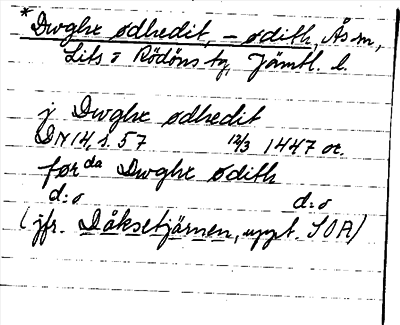 * Dwghx ødhedit, – ødith, Ås sn,
Lits o Rödöns tg, Jämtl. l.
j Dwghx ødhedit
DN 14, s. 57 12/3 1447 or.
før da Dwghx ødith
d:o d:o
(jfr. Dåksetjärnen, uppt. SOA)